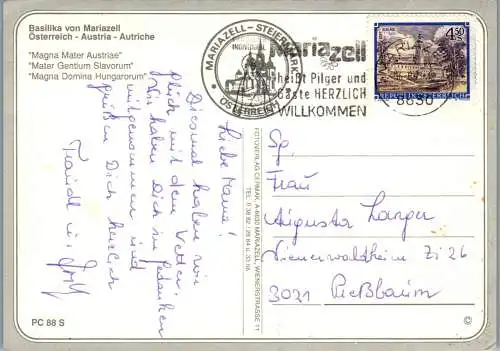 Basilika von Mariazell
Österreich - Austria - Autriche
"Magna Mater Austriae"
"Mater Gentium Slavorum"
"Magna Domina Hungarorum"
Liebe Mama!
Diesmal haben wir
Glück mit dem Wetter.
Wir haben Dich in Gedanken
mitgenommen und
grüßen Dich herzlich
Traudl u.
PC 88 S
FOTOVERLAG CERMAK, A-8630 MARIAZELL, WIENERSTRASSE 11
MARIAZELL - STEIERMARK
ÖSTERREICH
Mariazell
heißt Pilger und
Gäste HERZLICH
WILLKOMMEN
8630
4.50
REPUBLIK ÖSTERREICH
Frau
Augusta Langer
Wienerwaldheim Zi 26
3021 Preßbaum
©